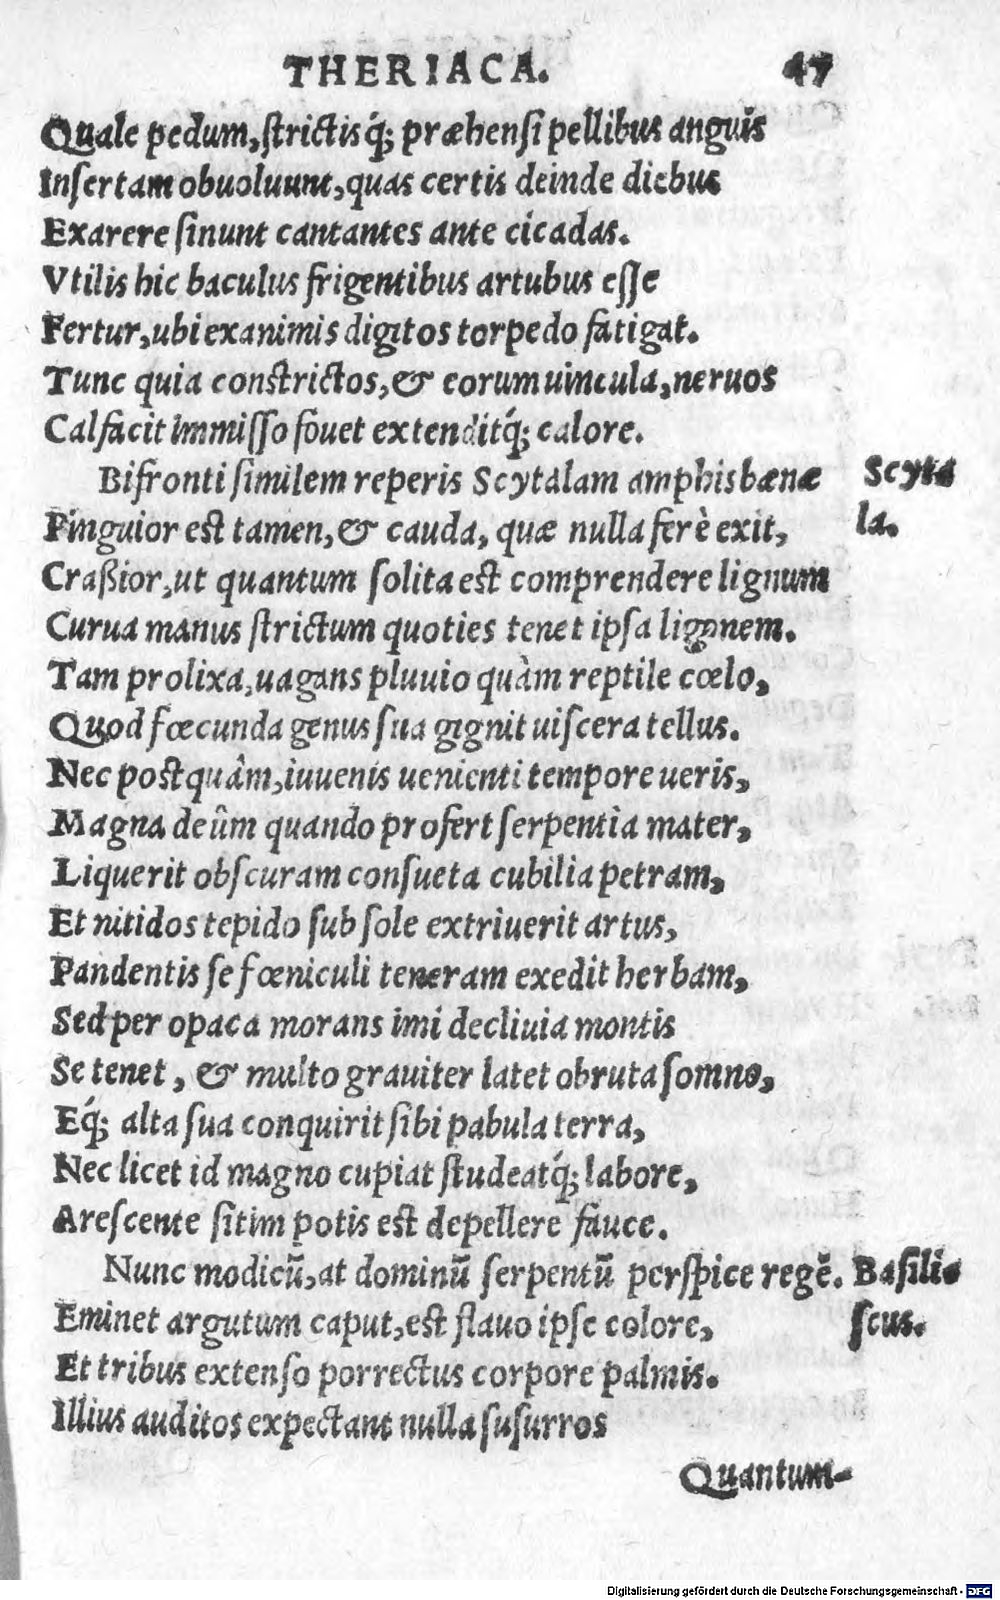 THERIACA. 47
Quale pedum, strictisq́; præhensi pellibus anguis
Insertam obuoluunt, quas certis deinde diebus
Exarere sinunt cantantes ante cicadas.
Vtilis hic baculus frigentibus artubus esse
Fertur, ubi exanimis digitos torpedo fatigat.
Tunc quia constrictos, & eorum uincula, neruos
Calfacit immisso fouet extenditq́; calore.
Bifronti similem reperis Scytalam amphisbænæ Scyta
Pinguior est tamen, & cauda, quæ nulla ferè exit, la.
Craßior, ut quantum solita est comprendere lignum
Curua manus strictum quoties tenet ipsa ligonem.
Tam prolixa, uagans pluuio quàm reptile cœlo,
Quod fœcunda genus sua gignit uiscera tellus.
Nec postquâm, iuuenis uenienti tempore ueris,
Magna deûm quando profert serpentia mater,
Liquerit obscuram consueta cubilia petram,
Et nitidos tepido sub sole extriuerit artus,
Pandentis se fœniculi teneram exedit herbam,
Sed per opaca morans imi decliuia montis
Se tenet, & multo grauiter latet obruta somno,
Eq́; alta sua conquirit sibi pabula terra,
Nec licet id magno cupiat studeatq́; labore,
Arescente sitim potis est depellere fauce.
Nunc modicū, at dominū serpentū perspice regē. Basili-
Eminet argutum caput, est flauo ipse colore, scus.
Et tribus extenso porrectus corpore palmis.
Illius auditos expectant nulla susurros
Quantum-
Digitalisierung gefördert durch die Deutsche Forschungsgemeinschaft - DFG